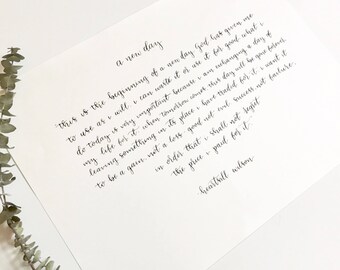 a new day
this is the beginning of a new day. God has given me
to use as i will. i can waste it or use it for good. what i
do today is very important because i am exchanging a day of
my life for it. when tomorrow comes this day will be gone forever
leaving something in its place i have traded for it. i want it
to be a gain not a loss good not evil success not failure
in order that i shall not regret
the price i paid for it.
heartsill wilson